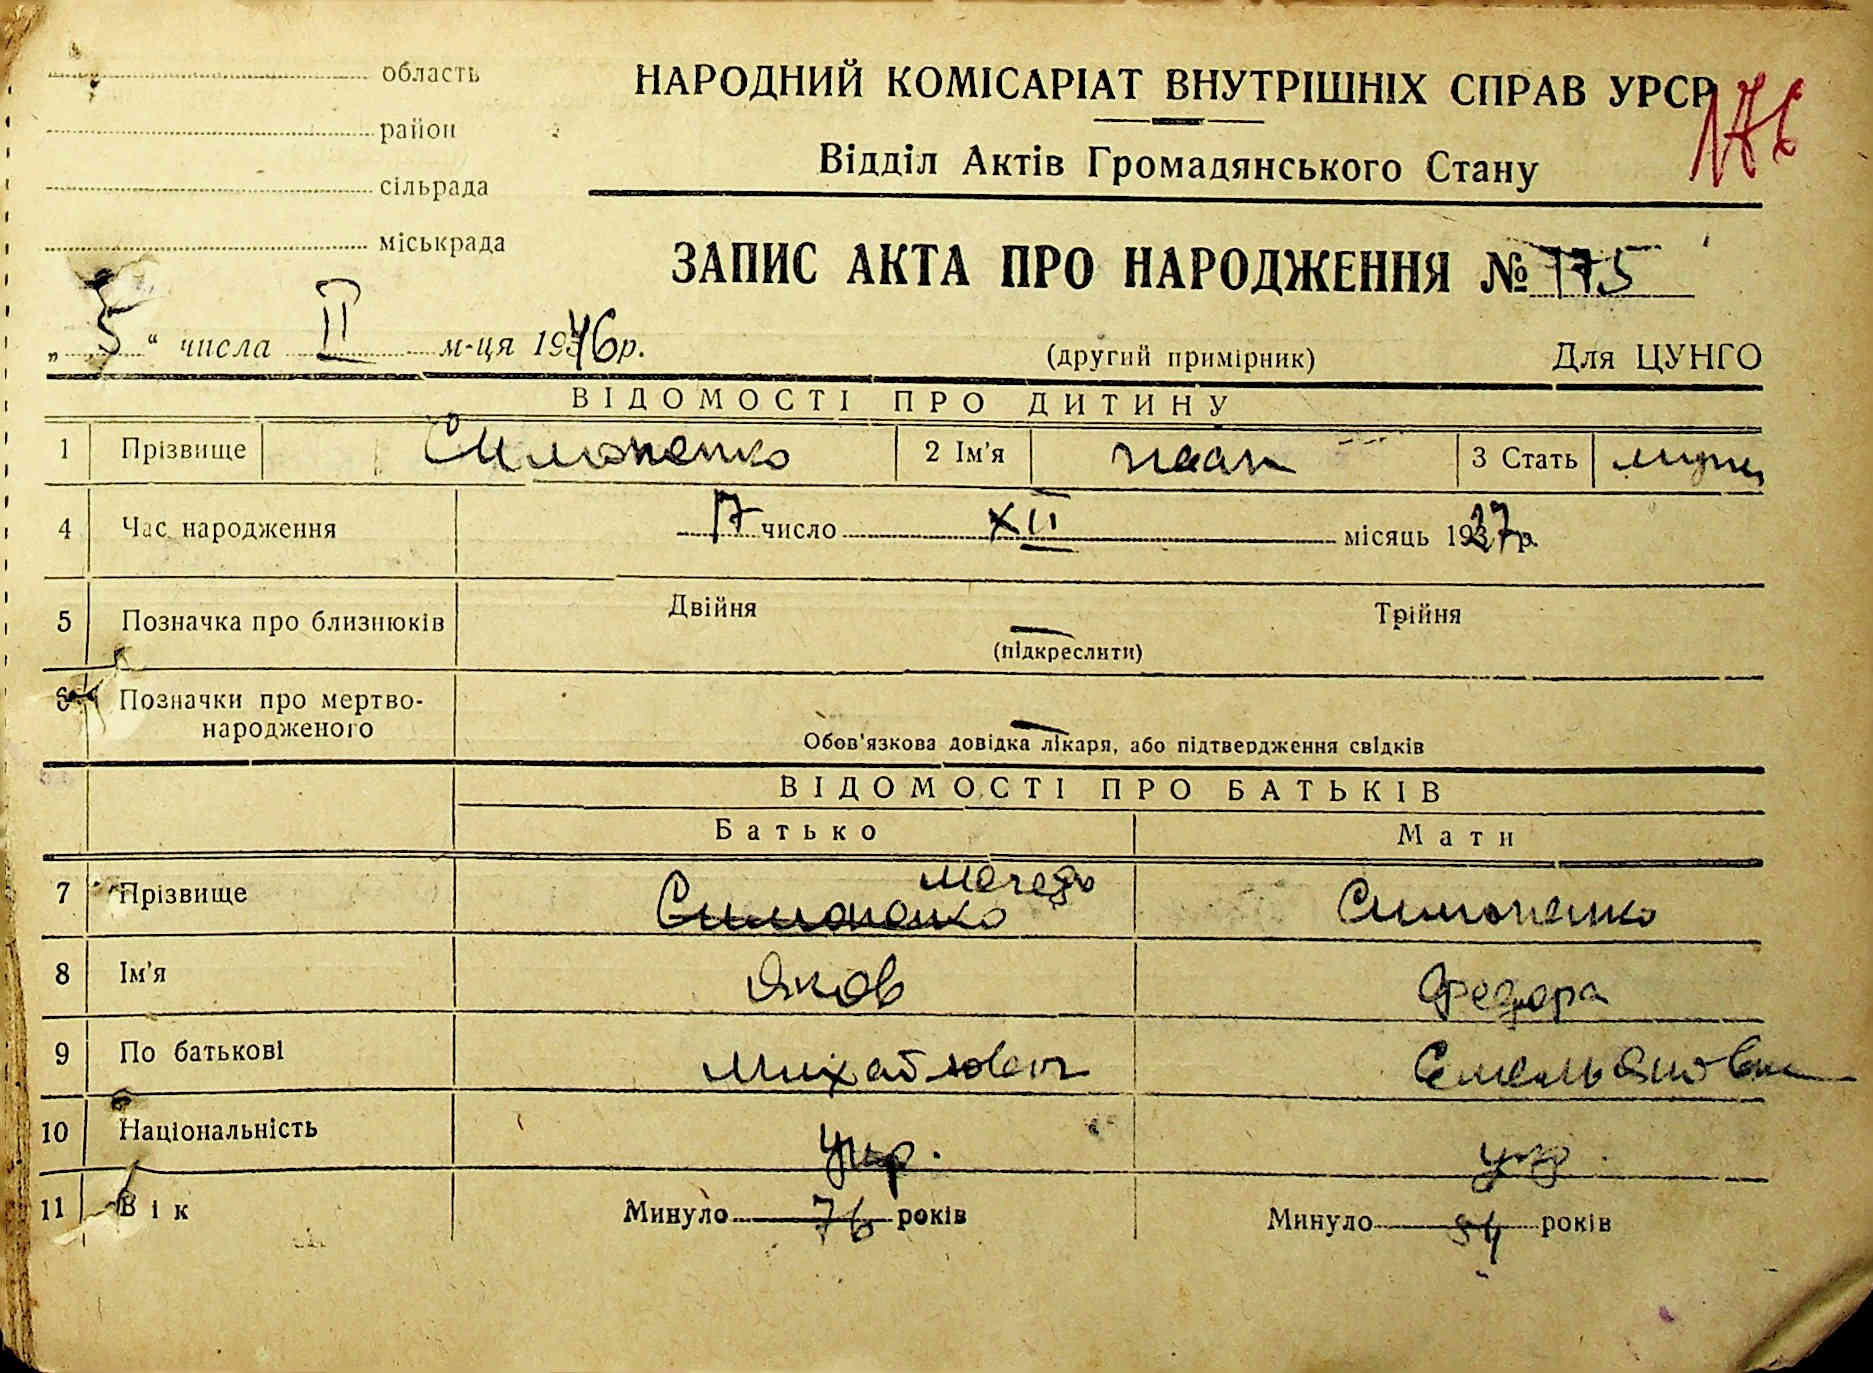 область
район
сільрада
міськрада
НАРОДНИЙ КОМІСАРІАТ ВНУТРІШНІХ СПРАВ УРСР
176
Відділ Актів Громадянського Стану
ЗАПИС АКТА ПРО НАРОДЖЕННЯ № 175
„5“ числа II м-ця 1946р.
(другий примірник) Для ЦУНГО
ВІДОМОСТІ ПРО ДИТИНУ
1 Прізвище Симоненко 2 Ім'я Иван 3 Стать
4 Час народження 17 число XII місяць 1937р.
5 Позначка про близнюків Двійня Трійня
(підкреслити)
6 Позначки про мертво-
народженого
Обов'язкова довідка лікаря, або підтвердження свідків
ВІДОМОСТІ ПРО БАТЬКІВ
Батько Мати
7 Прізвище Симоненко Симоненко
8 Ім'я Яков Федора
9 По батькові Михайлович Емельяновна
10 Національність укр. укр.
11 Вік Минуло 76 років Минуло 34 років